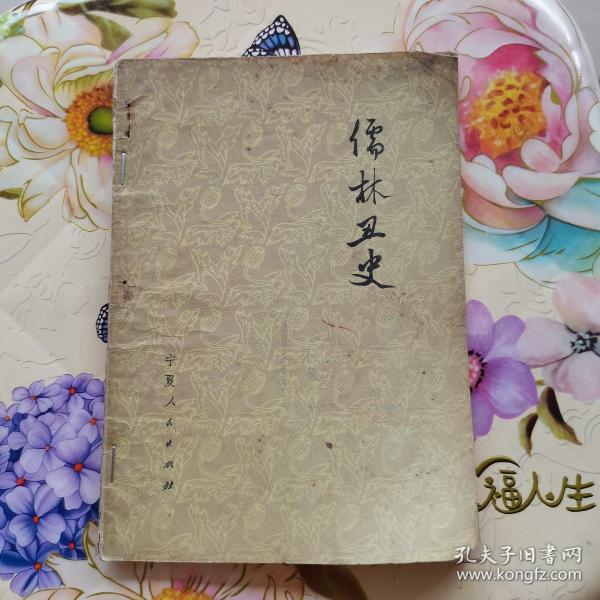 儒林丑史
宁夏人民出版社
福人生
孔夫子旧書网
www.kongfz.com